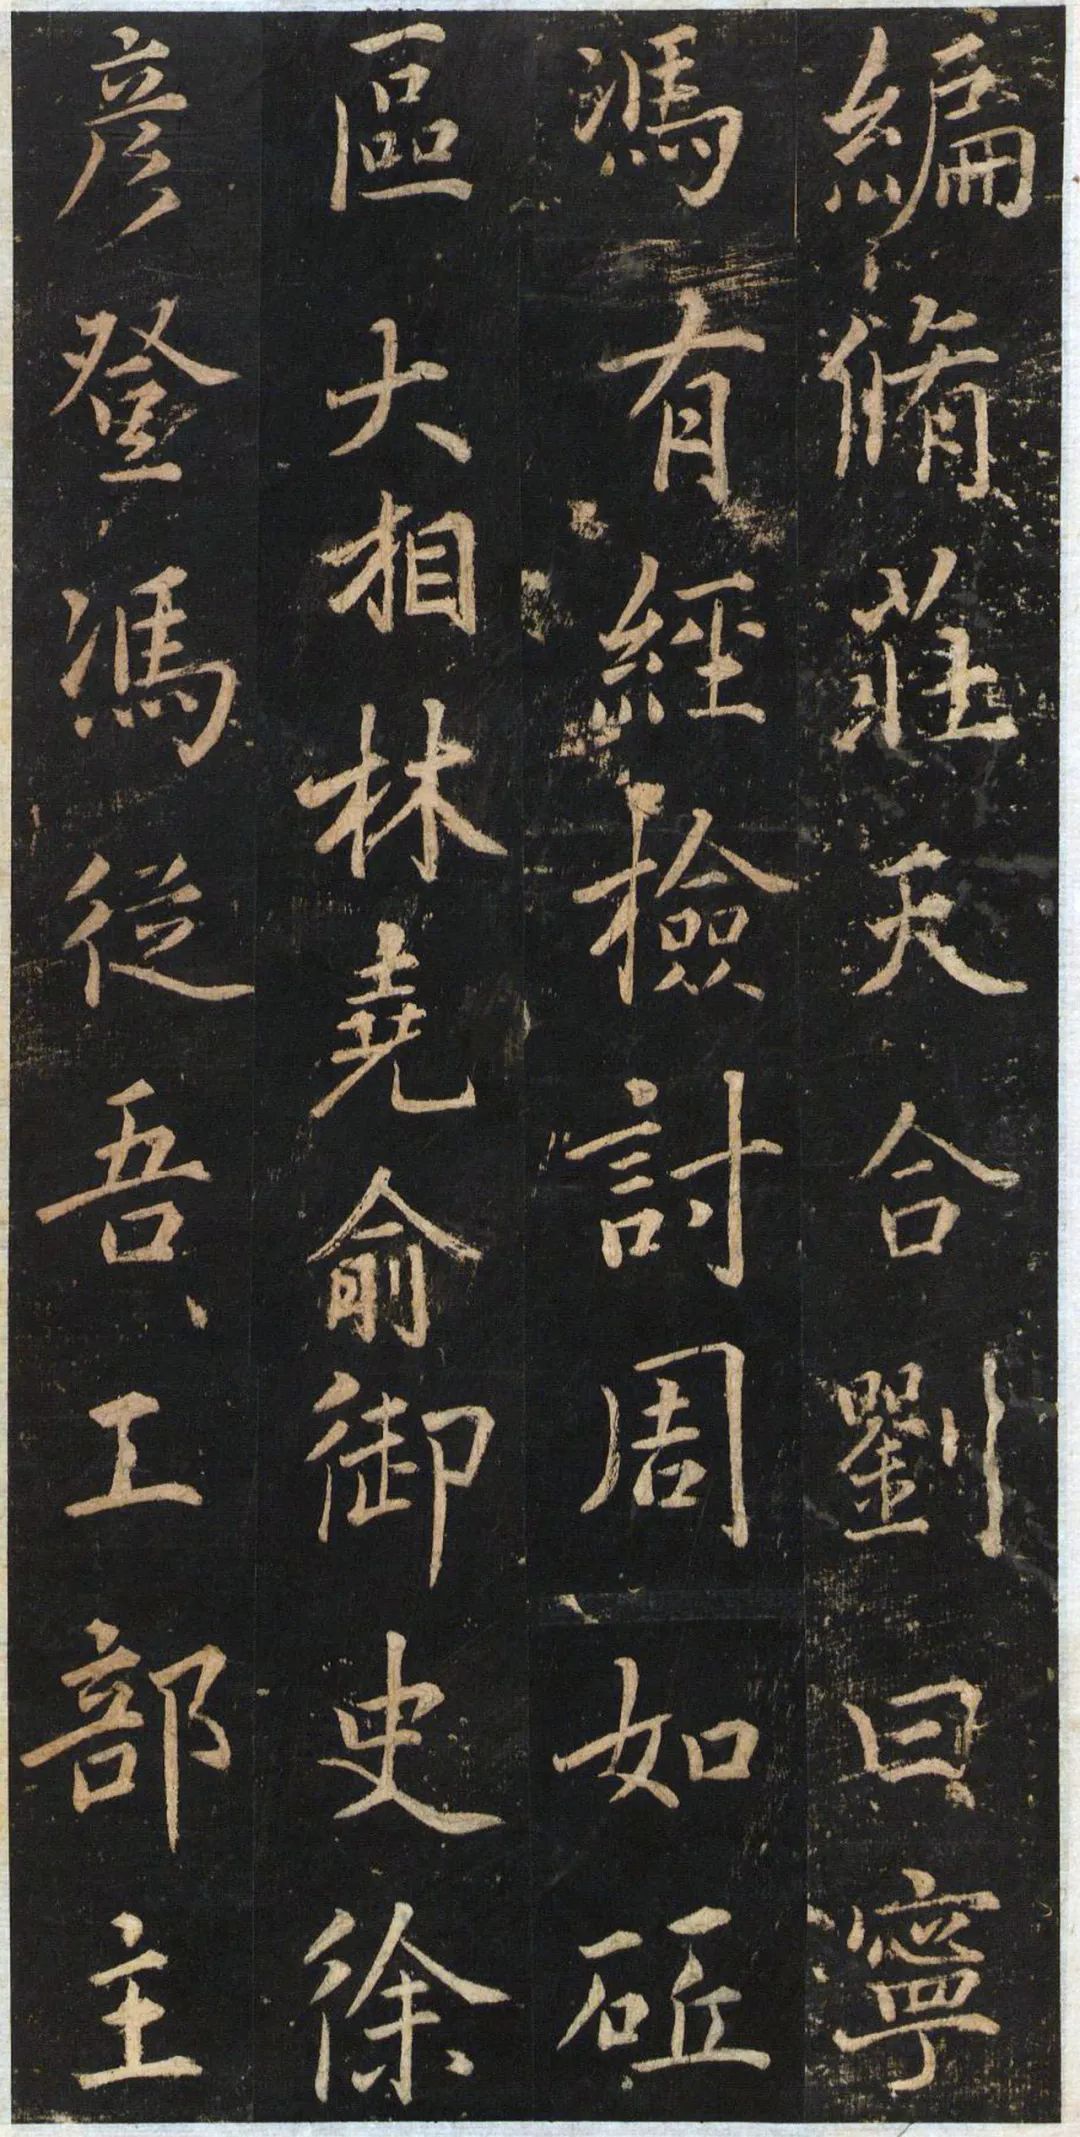 編脩莊天合劉曰寧
馮有經檢討周如砥
區大相林堯俞御史徐
彥登馮從吾工部主